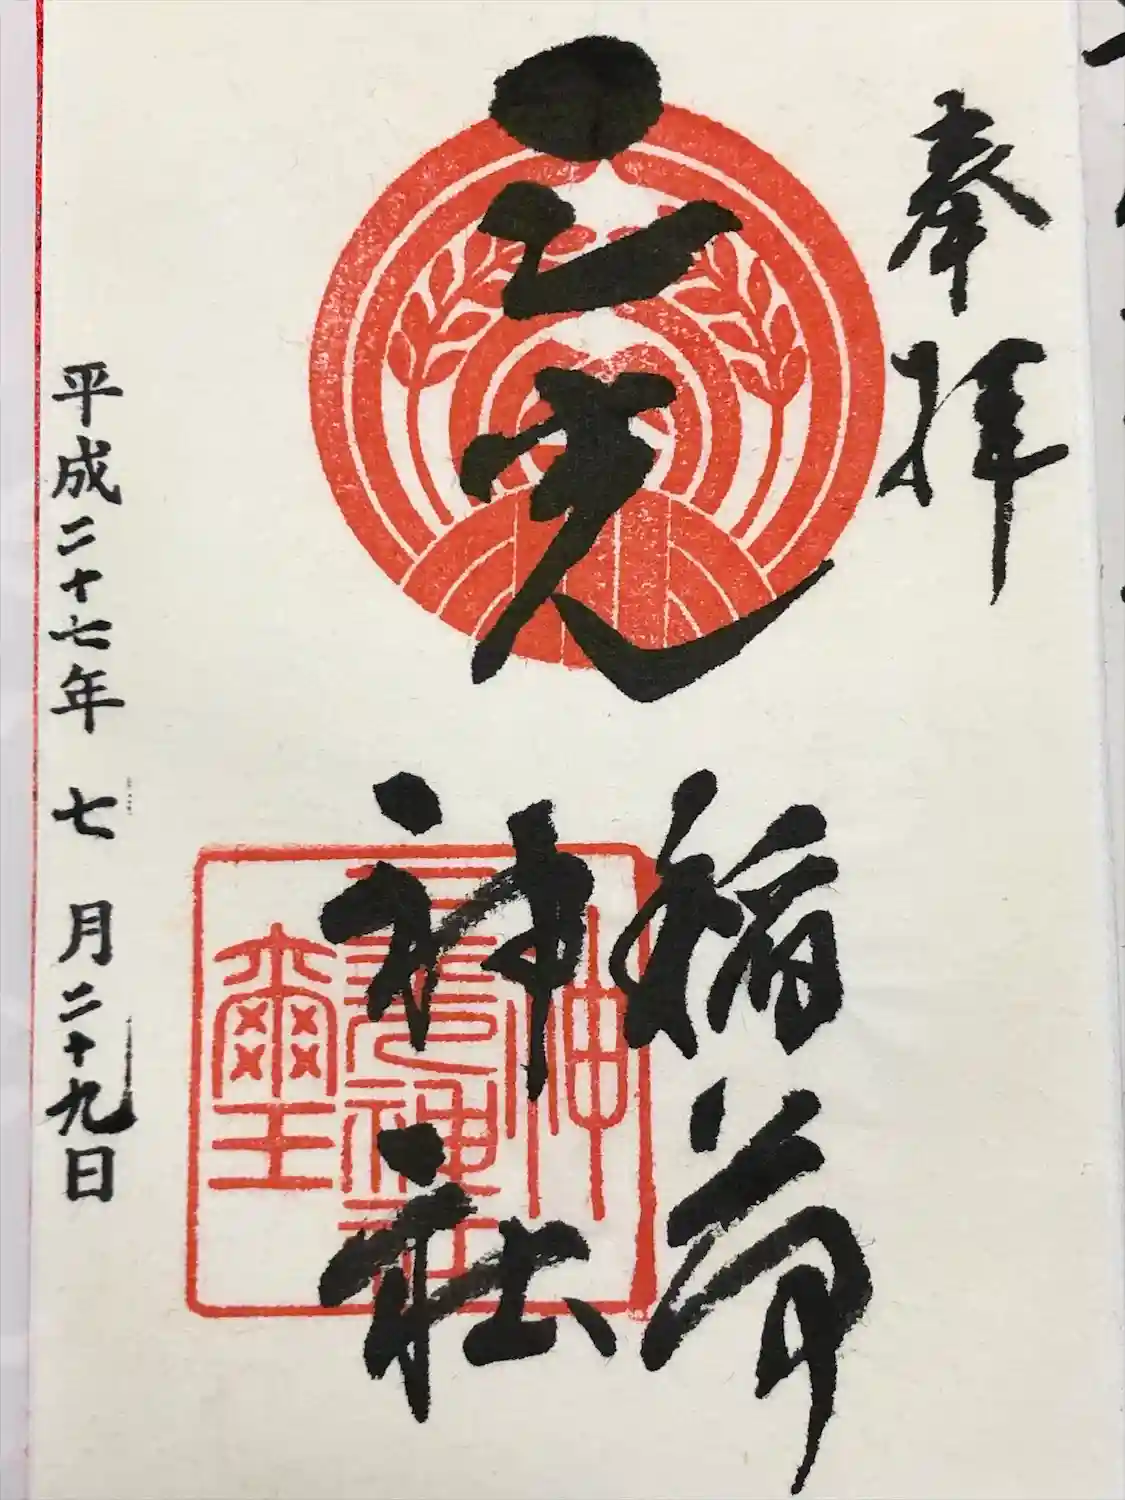 奉拝
三光
稲荷
神社
神
三光神社
璽
平成二十七年 七月二十九日